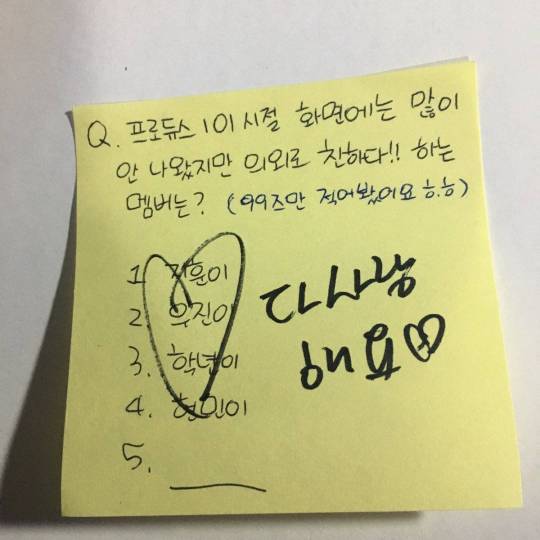 Q. 프로듀스 101 시절 화면에는 많이
안 나왔지만 의외로 친하다!! 하는
멤버는? (99즈만 적어봤어요 ㅎ.ㅎ)
1. 지훈이
2. 우진이
3. 학년이
4. 형민이
5.
다 사랑
해요